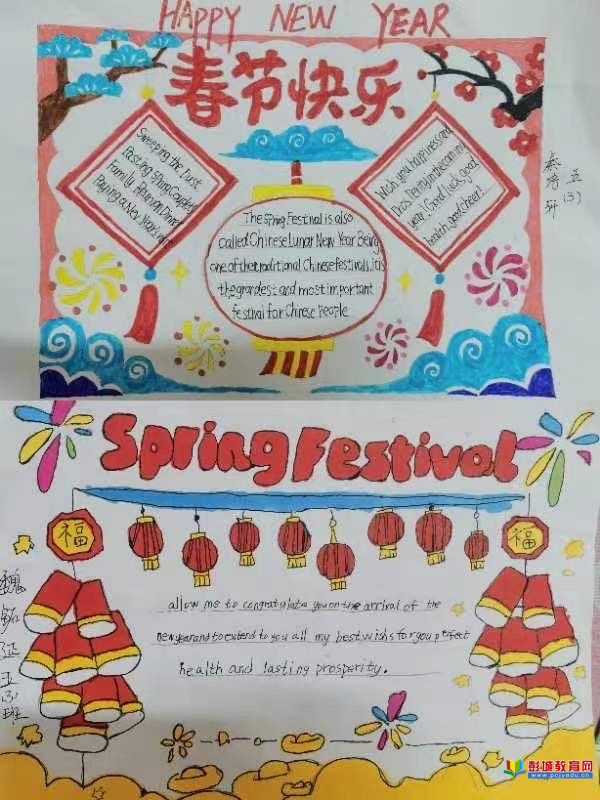 HAPPY NEW YEAR
春节快乐
Sweeping the Dust
Pasting Spring Couplets
Family Reunion Dinner
Paying a New Year's visit
Wish you happiness and
prosperity in the coming
year! Good luck, good
health, good cheer!
The Spring Festival is also
called Chinese Lunar New Year Being
one of the traditional Chinese festivals, it is
the grandest and most important
festival for Chinese People
五
(3)
Spring Festival
福
福
allow me to congratulate you on the arrival of the
new year and to extend to you all my best wishs for you pefect
health and lasting prosperity.
魏
征
五
(3)
班
彭城教育网
www.pcjyedu.cn